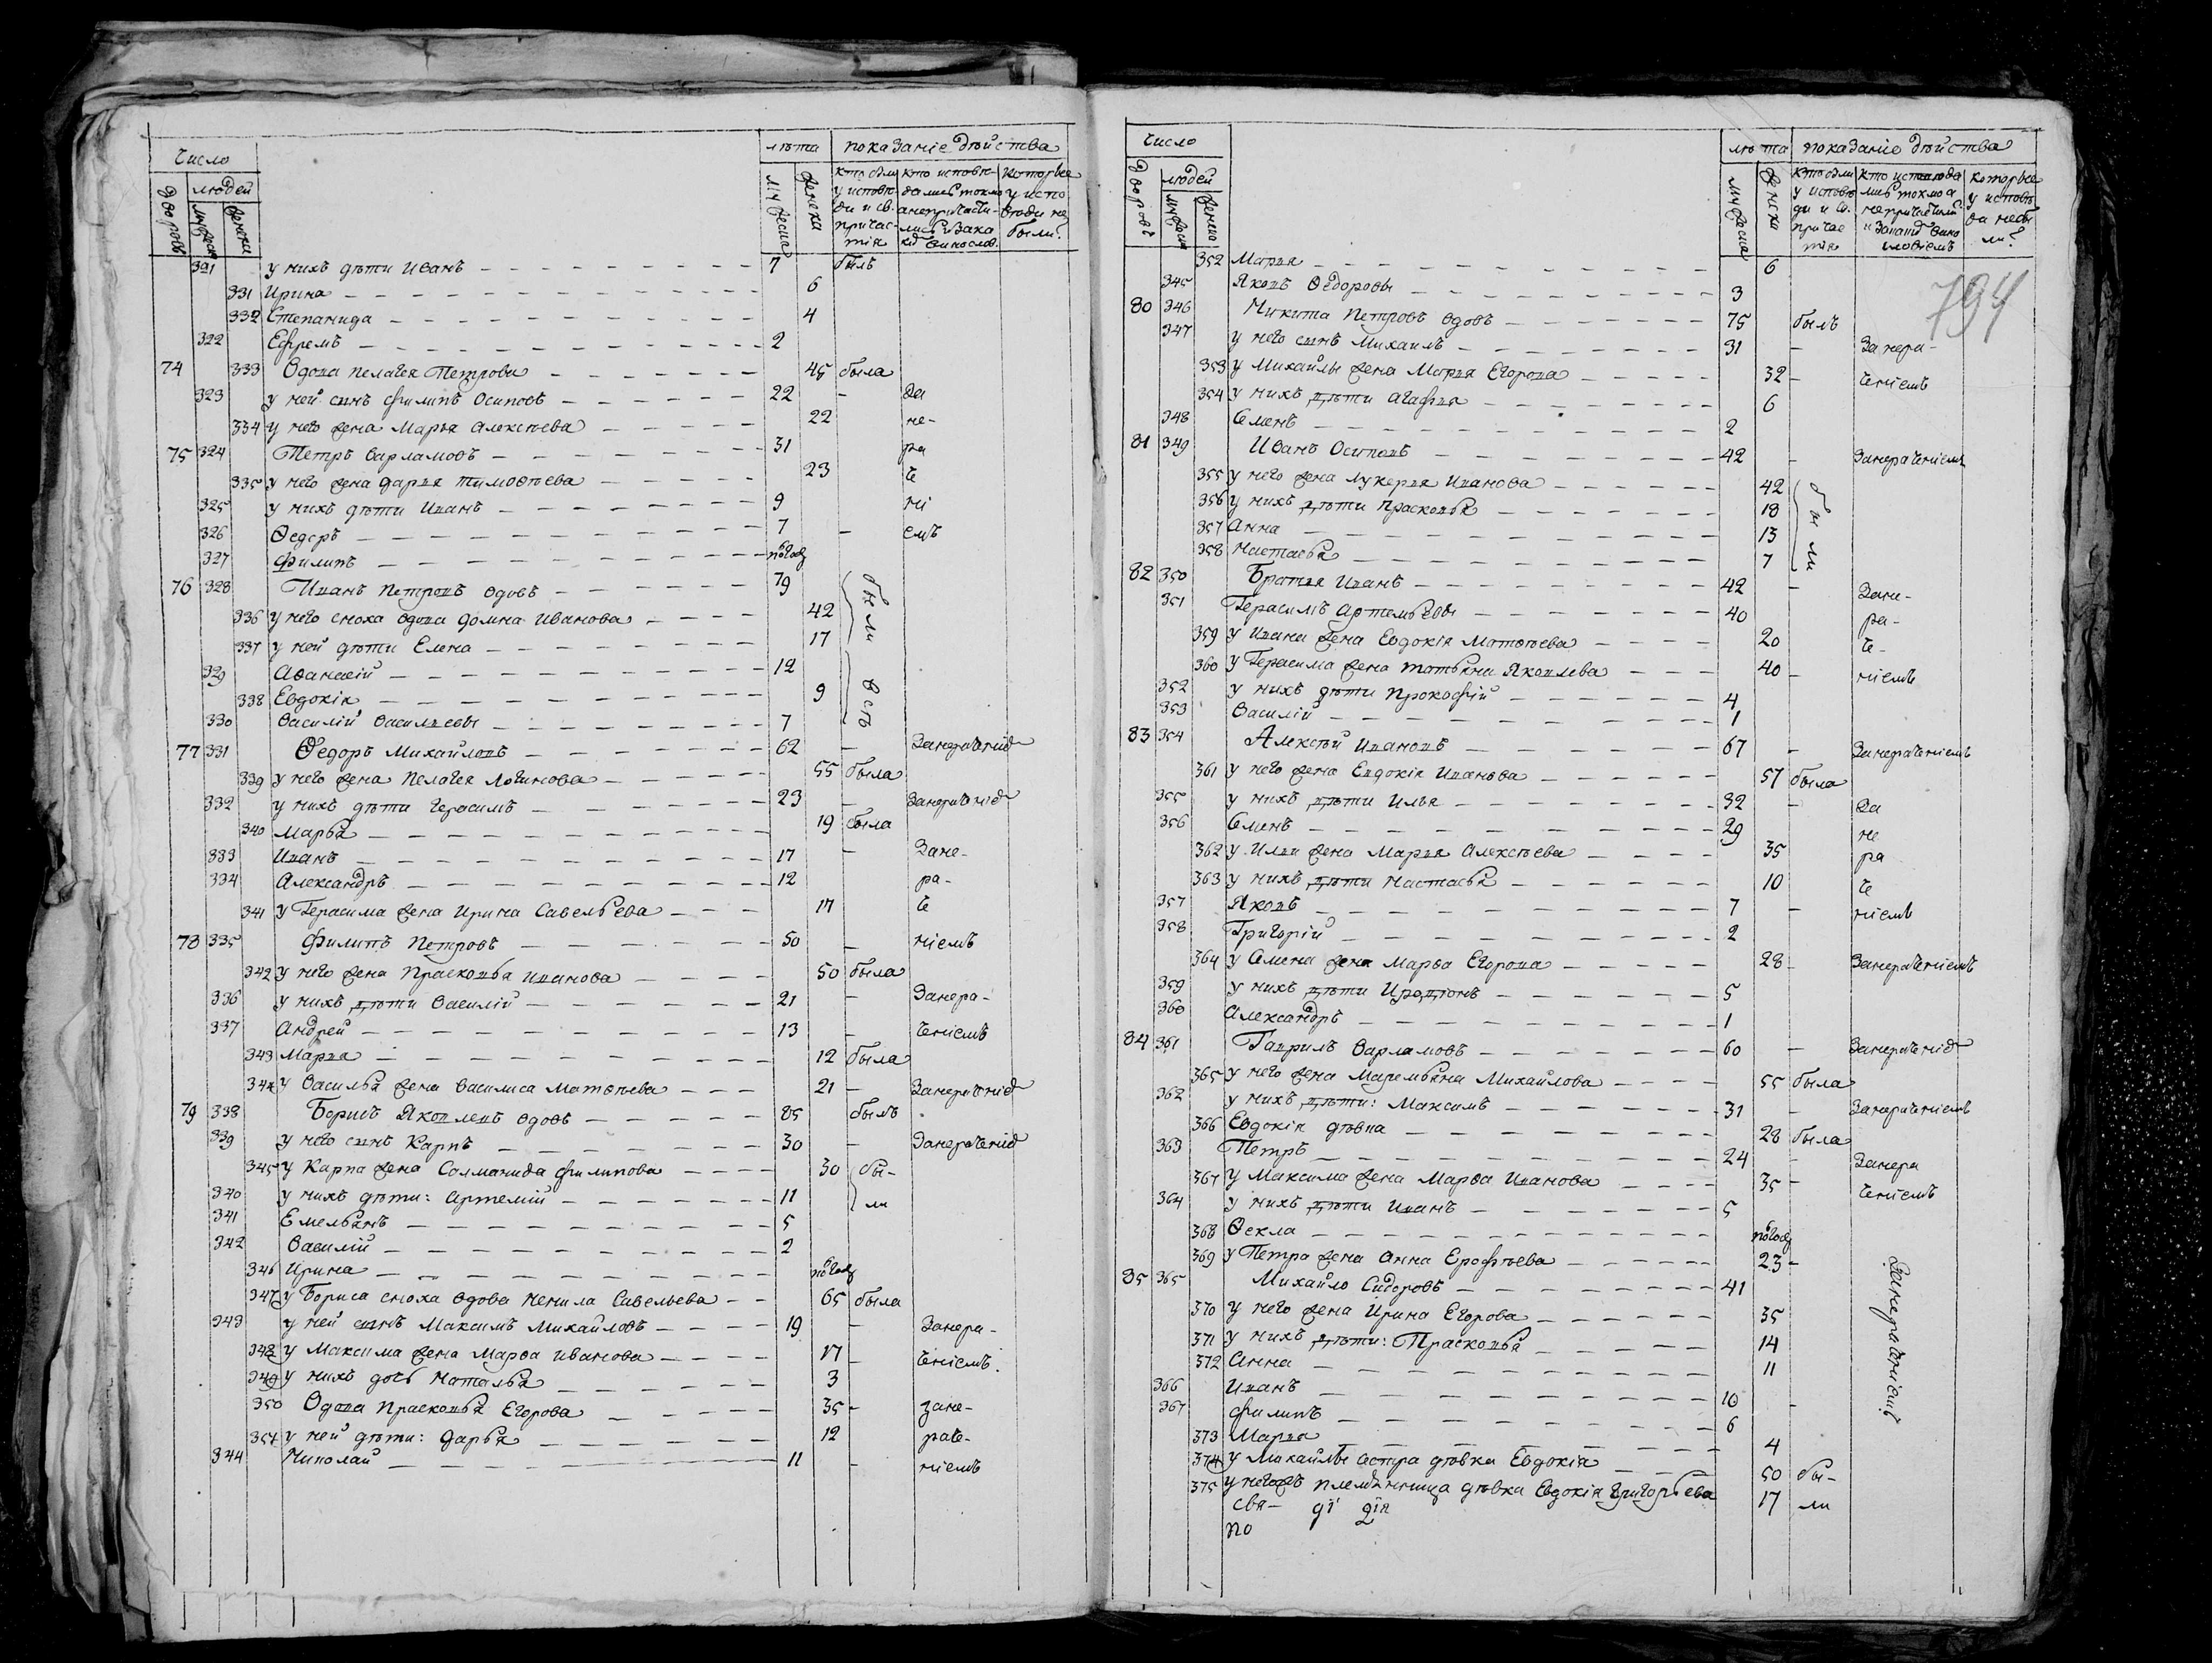 Число
лѣта показаніе дѣйства
дворовъ
людей
мужеска
женска
мужеска
женска
кто были у исповѣди и св. причастія
кто исповѣдались токмо а непричастились и за каким винослов.
которые у исповѣди не были?
321 у нихъ дѣти Иванъ 7 былъ
331 Ирина 6
332 Степанида 4
322 Ефремъ 2
74 333 Вдова Пелагея Петрова 45 была
323 у ней сынъ Филипъ Осиповъ 22 - За
334 у него жена Марья Алексѣева 22 не-
75 324 Петръ Варламовъ 31 ра
335 у него жена Дарья Тимоѳѣева 23 че
325 у нихъ дѣти Иванъ 9 ні
326 Ѳедоръ 7 - емъ
327 Филипъ полгод
76 328 Иванъ Петровъ вдовъ 79
336 у него сноха вдова Домна Иванова 42 были
337 у ней дѣти Елена 17
329 Аѳанасій 12
338 Евдокія 9 всѣ
330 Василій Васильевы 7
77 331 Ѳедоръ Михайловъ 62 - Занераченіе
339 у него жена Пелагея Логинова 55 была
332 у нихъ дѣти Герасимъ 23 - Занераченіе
340 Марья 19 была
333 Иванъ 17 - Зане-
334 Александръ 12 ра-
341 у Герасима жена Ирина Савельева 17 че
78 335 Филипъ Петровъ 50 - ніемъ
342 у него жена Прасковья Иванова 50 была
336 у нихъ дѣти Василій 21 - Занера-
337 Андрей 13 - ченіемъ
343 Марья 12 была
344 у Василья жена Василиса Матвѣева 21 - Занераченіе
79 338 Борисъ Яковлевъ вдовъ 85 былъ
339 у него сынъ Карпъ 30 - Занераченіе
345 у Карпа жена Соломанида Филипова 30 бы-
340 у нихъ дѣти: Артемій 11 ли
341 Емельянъ 5
342 Василій 2
346 Ирина полгод
347 у Бориса сноха вдова Ненила Савельева 65 была
343 у ней сынъ Максимъ Михайловъ 19 - Занера-
348 у Максима жена Марѳа Иванова 17 - ченіемъ.
349 у нихъ дочь Наталья 3
350 Вдова Прасковья Егорова 35 - зане-
351 у ней дѣти: Дарья 12 раче-
344 Николай 11 - ніемъ
794
Число
лѣта показаніе дѣйства
дворовъ
людей
мужеска
женска
мужеска
женска
кто были у исповѣди и св. причастія
кто исповѣдались токмо а непричастились и за каким винословіемъ
которые у исповѣди не были?
352 Марья 6
345 Яковъ Ѳедоровы 3
80 346 Никита Петровъ вдовъ 75 былъ
347 у него сынъ Михаилъ 31 - Занера-
353 у Михайлы жена Марья Егорова 32 - ченіемъ
354 у нихъ дѣти Агафья 6
348 Семенъ 2
81 349 Иванъ Осиповъ 42 - Занераченіемъ
355 у него жена Лукерья Иванова 42 были
356 у нихъ дѣти Прасковья 18
357 Анна 13
358 Настасья 7
82 350 Братья Иванъ 42 - Зане-
351 Герасимъ Артемьевы 40 ра-
359 у Ивана жена Евдокія Матвѣева 20 че-
360 у Герасима жена Татьяна Яковлева 40 - ніемъ
352 у нихъ дѣти Прокофій 4
353 Василій 1
83 354 Алексѣй Ивановъ 67 - Занераченіемъ
361 у него жена Евдокія Иванова 57 была
355 у нихъ дѣти Илья 32 - За
356 Семенъ 29 не
362 у Ильи жена Марья Алексѣева 35 ра
363 у нихъ дѣти Настасья 10 че
357 Яковъ 7 - ніемъ
358 Григорій 2
364 у Семена жена Марѳа Егорова 28 - Занераченіемъ
359 у нихъ дѣти Иродіонъ 5
360 Александръ 1
84 361 Гаврилъ Варламовъ 60 - Занераченіе
365 у него жена Маремьяна Михайлова 55 была
362 у нихъ дѣти: Максимъ 31 - Занераченіемъ
366 Евдокія дѣвка 28 была
363 Петръ 24 - Занера
367 у Максима жена Марѳа Иванова 35 - ченіемъ
364 у нихъ дѣти Иванъ 5
368 Ѳекла полгод
369 у Петра жена Анна Ерофѣева 23 -
85 365 Михайло Сидоровъ 41 Занераченіемъ
370 у него жена Ирина Егорова 35
371 у нихъ дѣти: Прасковья 14
372 Анна 11
366 Иванъ 10 -
367 Филипъ 6
373 Марья 4
374 у Михайлы сестра дѣвка Евдокія 50 бы-
375 у него жъ племянница дѣвка Евдокія Григорьева 17 ли
свя-
по